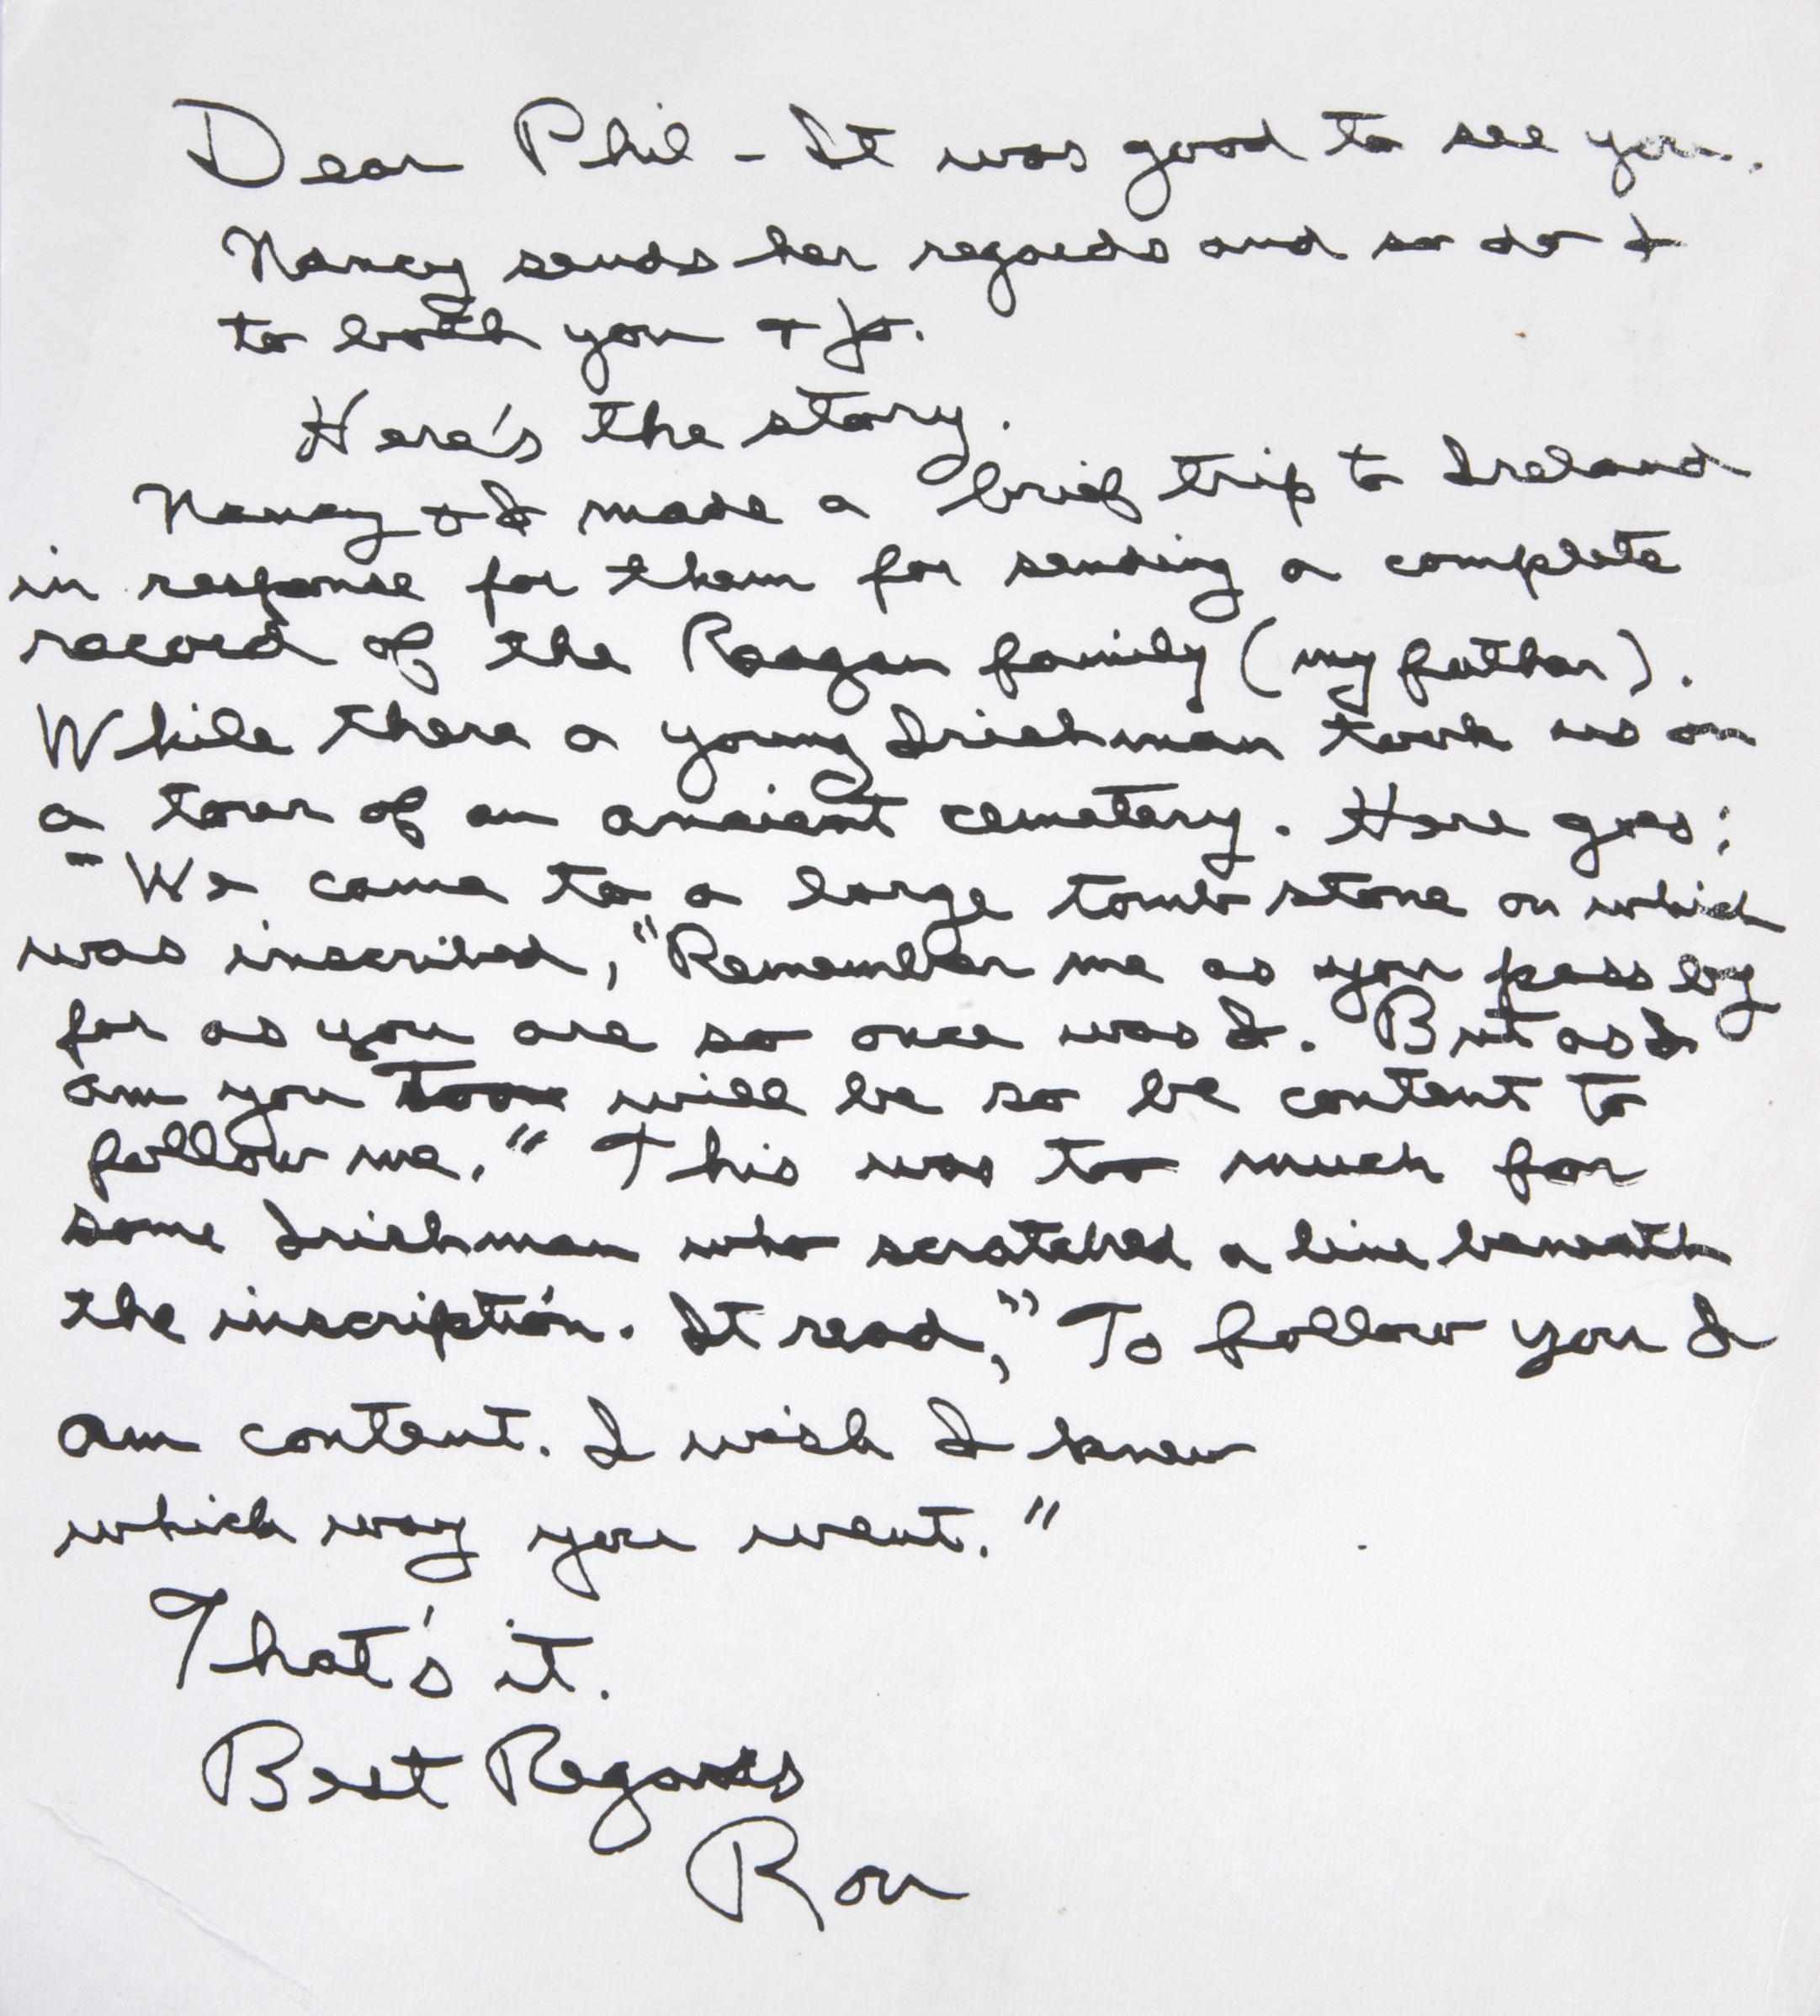 Dear Phil - It was good to see you.
Nancy sends her regards and so do I
to both you + Jo.
Here's the story.
Nancy + I made a brief trip to Ireland
in response for them for sending a complete
record of the Reagan family (my father).
While there a young Irishman took us on
a tour of an ancient cemetery. Here goes;
"We came to a large tomb stone on which
was inscribed, "Remember me as you pass by
for as you are so once was I. But as I
am you too will be so be content to
follow me." This was too much for
some Irishman who scratched a line beneath
the inscription. It read, "To follow you I
am content. I wish I knew
which way you went."
That's it.
Best Regards
Ron